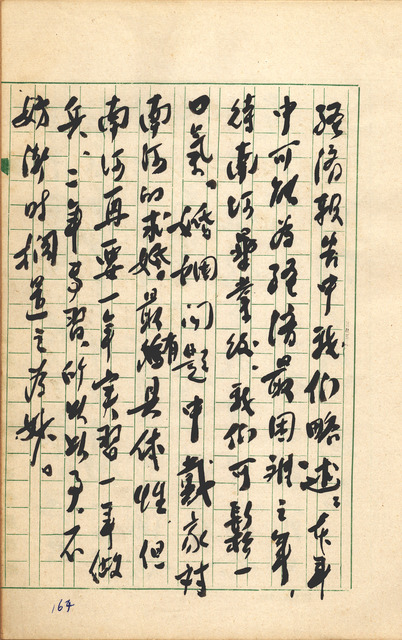 经济报告中我们略述：本年
中可能为经济最困难之年，
待南河毕业后，我们可松一
口气。婚姻问题中戴家对
南河的求婚。最有具体性，但
南河再要一年实习一年做
兵、二年学习，所以此事不
妨渐时搁置之为妙。
164